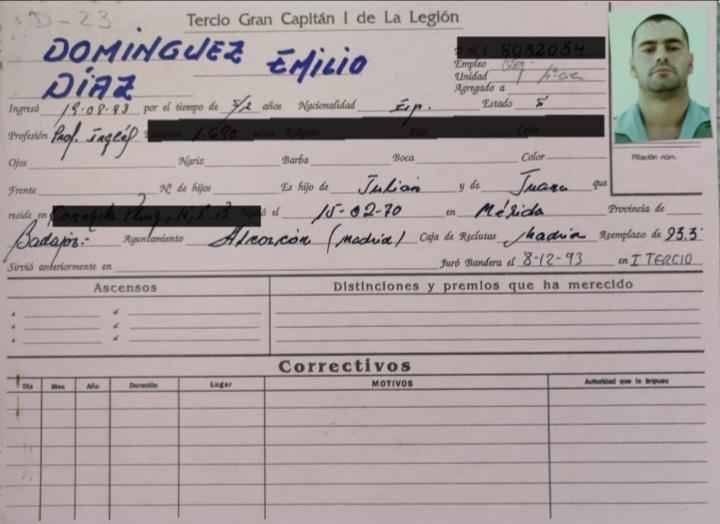 D-23
Tercio Gran Capitán I de La Legión
DOMÍNGUEZ EMILIO
DÍAZ
Empleo
Unidad
Agregado a
Ingresó 19-08-93 por el tiempo de años Nacionalidad Esp. Estado S
Profesión Prof. Inglés
Ojos Nariz Barba Boca Color
Filiación núm.
Frente Nº de hijos Es hijo de Julian y de Juana que
reside en el 15-02-70 en Mérida Provincia de
Badajoz.- Ayuntamiento Alcorcón (Madrid) Caja de Reclutas Madrid Reemplazo de 93.3º
Sirvió anteriormente en Juró Bandera el 8-12-93 en I TERCIO
Ascensos Distinciones y premios que ha merecido
a d
a d
a d
Correctivos
Día Mes Año Duración Lugar MOTIVOS Autoridad que lo impuso